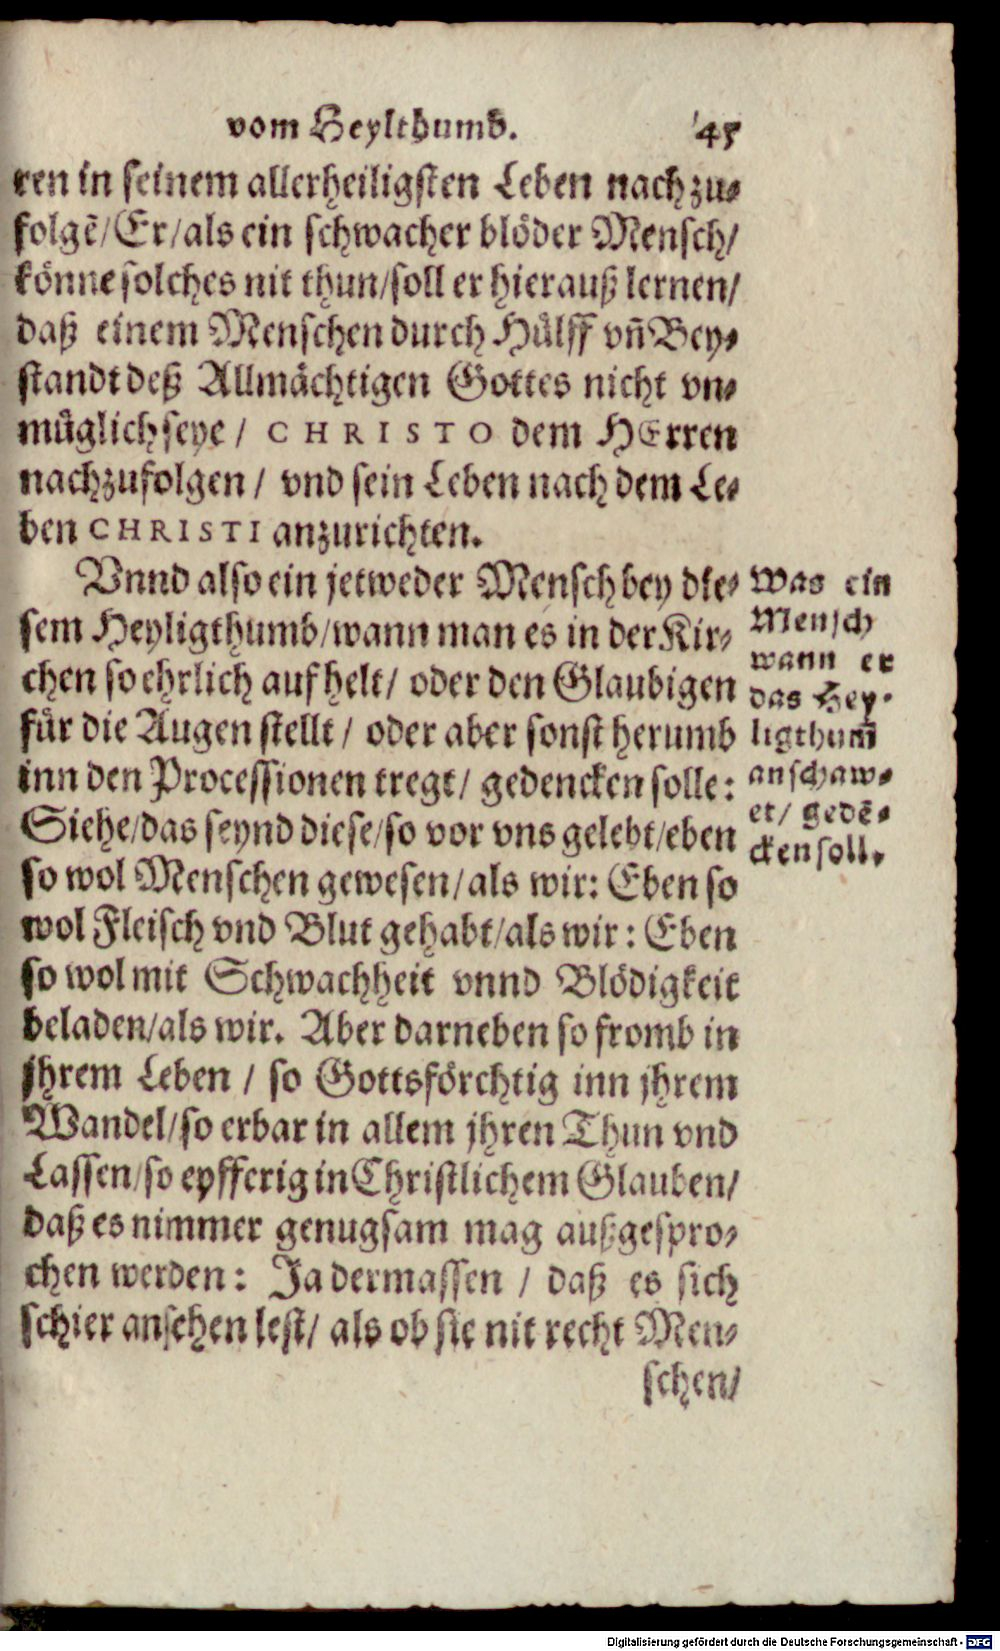 vom Heylthumb. 45
ren in seinem allerheiligsten Leben nachzu⸗
folgẽ/Er/als ein schwacher blöder Mensch/
könne solches nit thun/soll er hierauß lernen/
daß einem Menschen durch Hülff vñ Bey⸗
standt deß Allmächtigen Gottes nicht vn⸗
müglich seye / CHRISTO dem HErren
nachzufolgen / vnd sein Leben nach dem Le⸗
ben CHRISTI anzurichten.
Vnnd also ein jetweder Mensch bey die⸗
sem Heyligthumb/wann man es in der Kir⸗
chen so ehrlich auf helt/ oder den Glaubigen
für die Augen stellt / oder aber sonst herumb
inn den Processionen tregt/ gedencken solle:
Siehe/das seynd diese/so vor vns gelebt/eben
so wol Menschen gewesen/als wir: Eben so
wol Fleisch vnd Blut gehabt/als wir: Eben
so wol mit Schwachheit vnnd Blödigkeit
beladen/als wir. Aber darneben so fromb in
jhrem Leben / so Gottsförchtig inn jhrem
Wandel/so erbar in allem jhren Thun vnd
Lassen/so eyfferig in Christlichem Glauben/
daß es nimmer genugsam mag außgespro⸗
chen werden: Ja dermassen / daß es sich
schier ansehen lest/ als ob sie nit recht Men⸗
schen/
Was ein
Mensch
wann er
das Hey⸗
ligthum̃
anschaw⸗
et/ gedẽ⸗
cken soll.
Digitalisierung gefördert durch die Deutsche Forschungsgemeinschaft - DFG